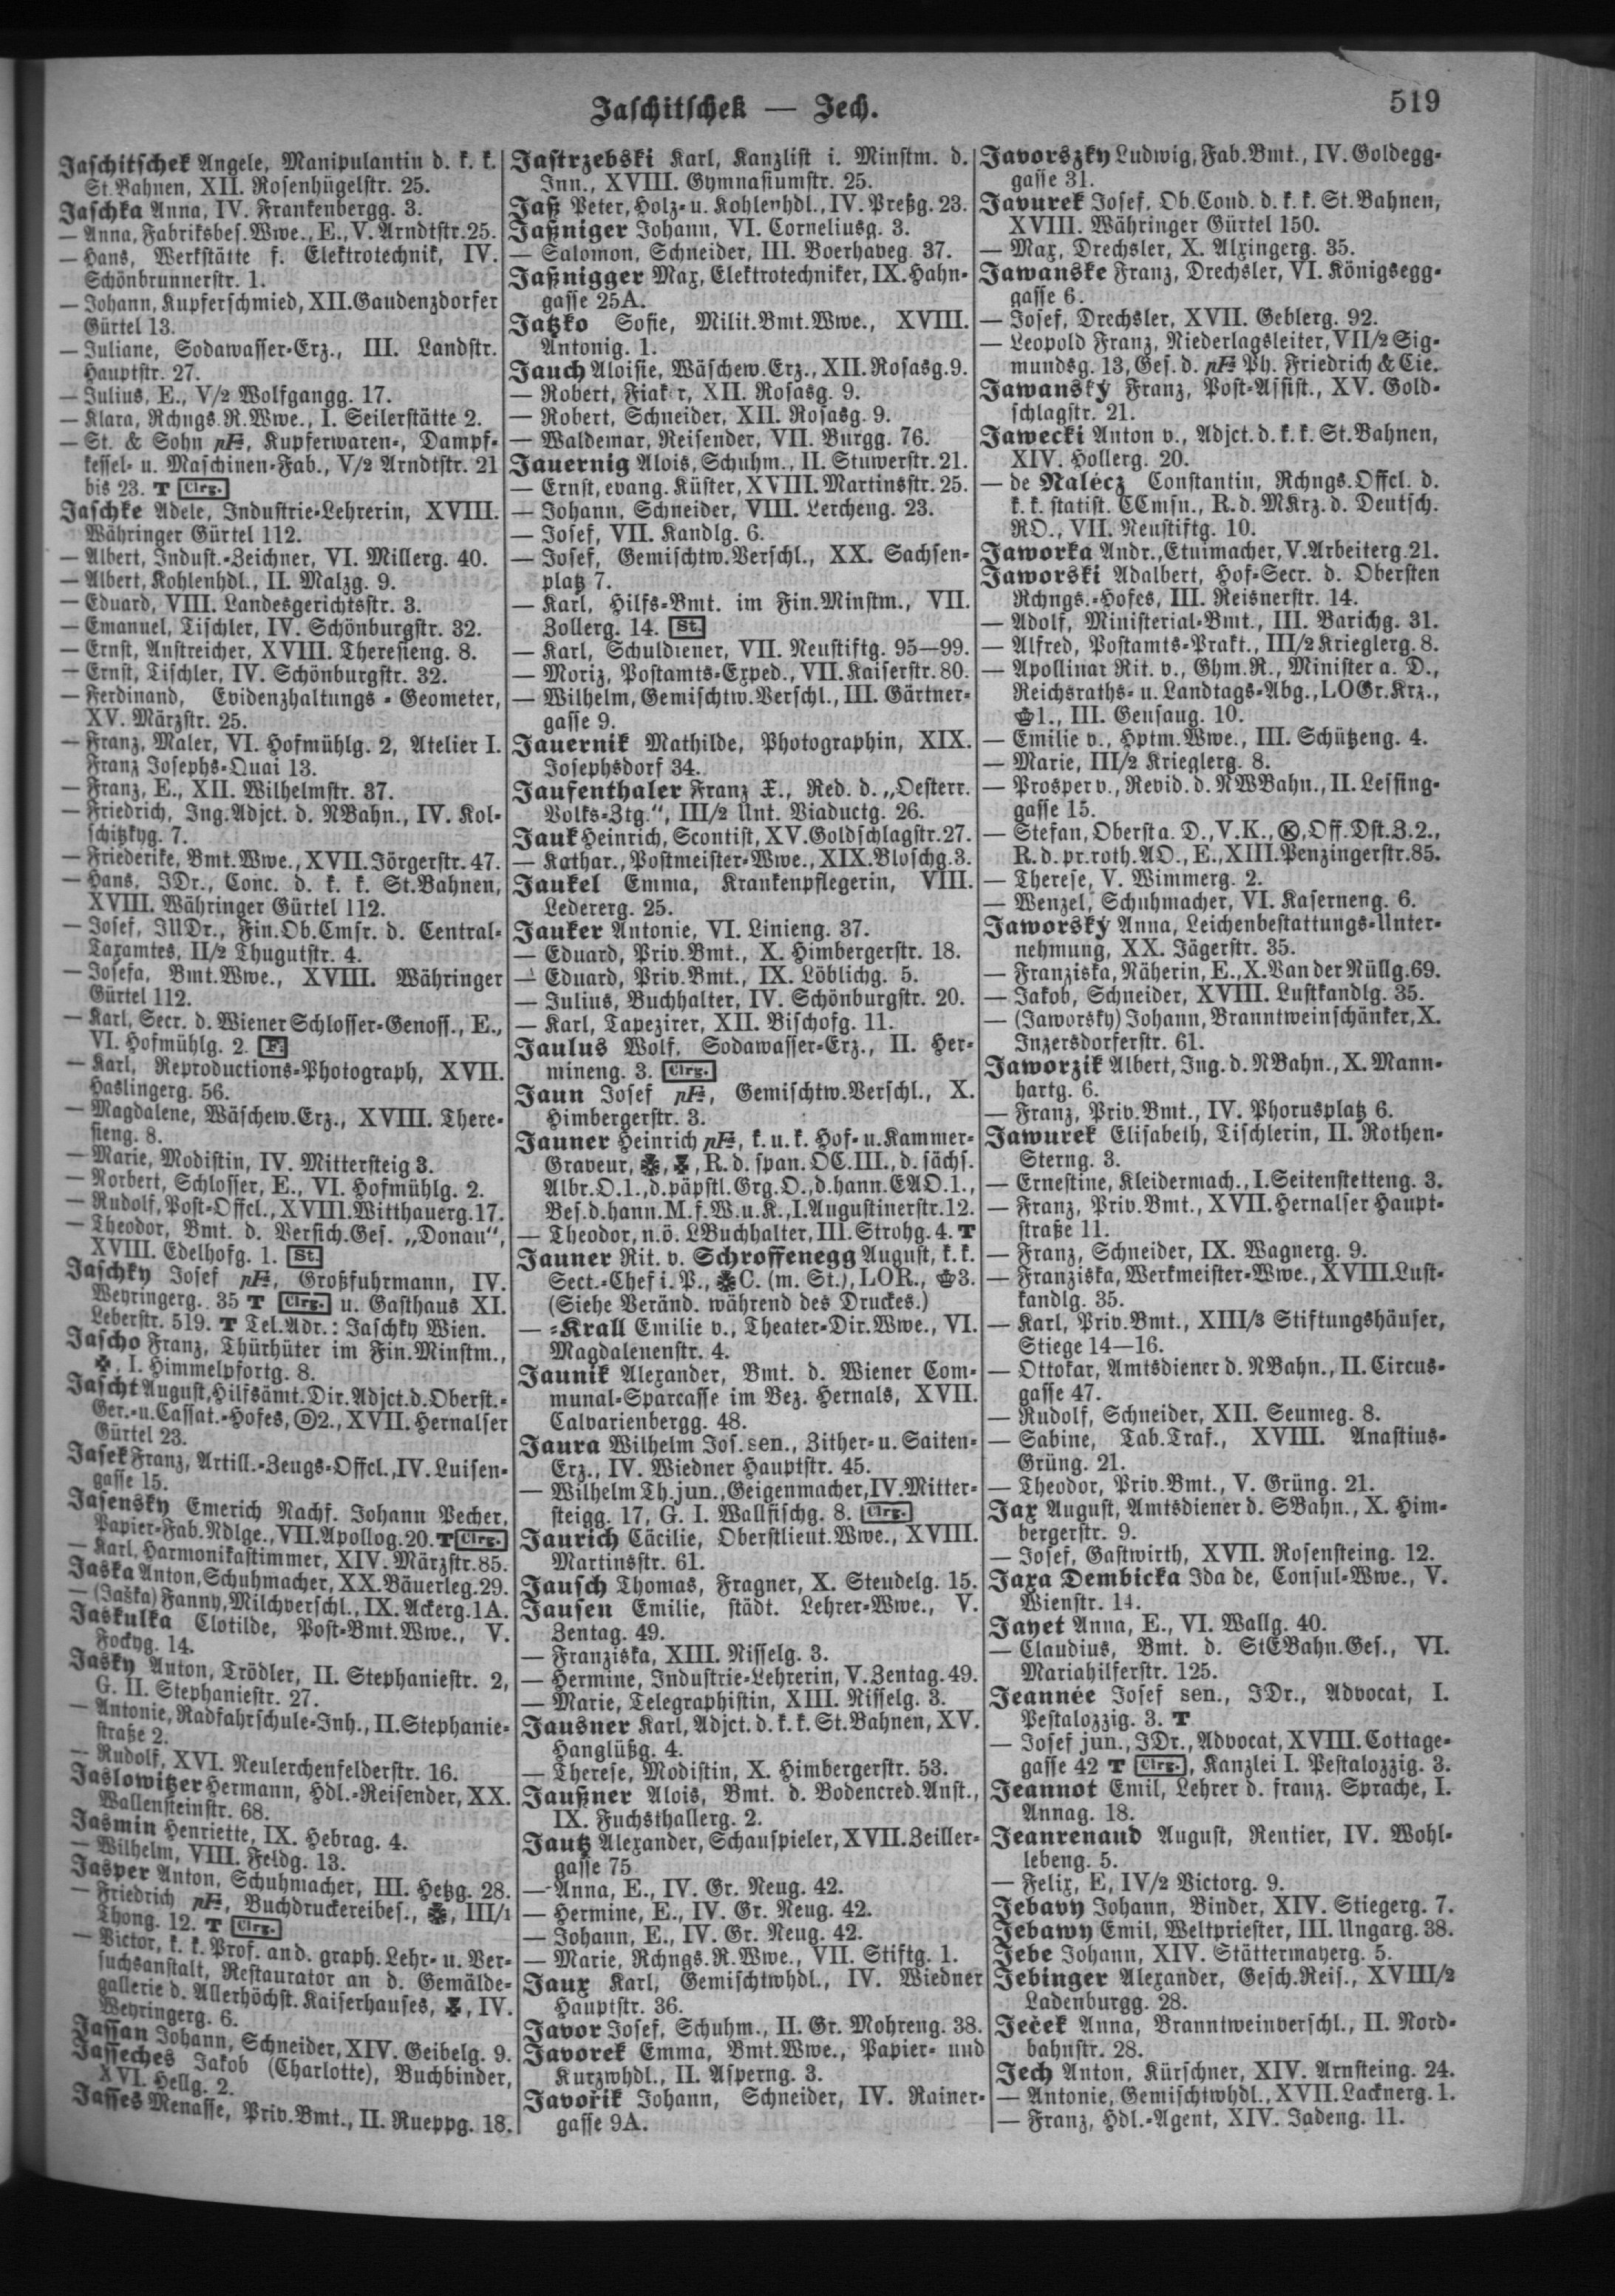 Jaschitschek — Jech.
519
Jaschitschek Angele, Manipulantin d. k. k.
St.Bahnen, XII. Rosenhügelstr. 25.
Jaschka Anna, IV. Frankenbergg. 3.
— Anna, Fabriksbes.Wwe., E., V. Arndtstr. 25.
— Hans, Werkstätte f. Elektrotechnik, IV.
Schönbrunnerstr. 1.
— Johann, Kupferschmied, XII. Gaudenzdorfer
Gürtel 13.
— Juliane, Sodawasser-Erz., III. Landstr.
Hauptstr. 27.
— Julius, E., V/2 Wolfgangg. 17.
— Klara, Rchngs.R.Wwe., I. Seilerstätte 2.
— St. & Sohn pF., Kupferwaren-, Dampf-
kessel- u. Maschinen-Fab., V/2 Arndtstr. 21
bis 23. T Clrg.
Jaschke Adele, Industrie-Lehrerin, XVIII.
Währinger Gürtel 112.
— Albert, Indust.-Zeichner, VI. Millerg. 40.
— Albert, Kohlenhdl., II. Malzg. 9.
— Eduard, VIII. Landesgerichtsstr. 3.
— Emanuel, Tischler, IV. Schönburgstr. 32.
— Ernst, Anstreicher, XVIII. Theresieng. 8.
— Ernst, Tischler, IV. Schönburgstr. 32.
— Ferdinand, Evidenzhaltungs-Geometer,
XV. Märzstr. 25.
— Franz, Maler, VI. Hofmühlg. 2, Atelier I.
Franz Josephs-Quai 13.
— Franz, E., XII. Wilhelmstr. 37.
— Friedrich, Ing.Adjct. d. NBahn., IV. Kol-
schitzkyg. 7.
— Friederike, Bmt.Wwe., XVII. Jörgerstr. 47.
— Hans, JDr., Conc. d. k. k. St.Bahnen,
XVIII. Währinger Gürtel 112.
— Josef, JUDr., Fin.Ob.Cmsr. d. Central-
Taxamtes, II/2 Thugutstr. 4.
— Josefa, Bmt.Wwe., XVIII. Währinger
Gürtel 112.
— Karl, Secr. d. Wiener Schlosser-Genoss., E.,
VI. Hofmühlg. 2. F.
— Karl, Reproductions-Photograph, XVII.
Haslingerg. 56.
— Magdalene, Wäschew.Erz., XVIII. There-
sieng. 8.
— Marie, Modistin, IV. Mittersteig 3.
— Norbert, Schlosser, E., VI. Hofmühlg. 2.
— Rudolf, Post-Offcl., XVIII. Witthauerg. 17.
— Theodor, Bmt. d. Versich.Ges. „Donau“,
XVIII. Edelhofg. 1. St.
Jaschky Josef pF., Großfuhrmann, IV.
Weyringerg. 35 T Clrg. u. Gasthaus XI.
Leberstr. 519. T Tel.Adr.: Jaschky Wien.
Jascho Franz, Thürhüter im Fin.Minstm.,
I. Himmelpfortg. 8.
Jascht August, Hilfsämt.Dir.Adjct.d.Oberst.-
Ger.- u. Cassat.-Hofes, Ⓓ2., XVII. Hernalser
Gürtel 23.
Jasek Franz, Artill.-Zeugs-Offcl., IV. Luisen-
gasse 15.
Jasensky Emerich Nachf. Johann Pecher,
Papier-Fab.Ndlge., VII. Apollog. 20. T Clrg.
— Karl, Harmonikastimmer, XIV. Märzstr. 85.
Jaska Anton, Schuhmacher, XX. Bäuerleg. 29.
— (Jaška) Fanny, Milchverschl., IX. Ackerg. 1A.
Jaskulka Clotilde, Post-Bmt.Wwe., V.
Fockyg. 14.
Jasky Anton, Trödler, II. Stephaniestr. 2,
G. II. Stephaniestr. 27.
— Antonie, Radfahrschule-Inh., II. Stephanie-
straße 2.
— Rudolf, XVI. Neulerchenfelderstr. 16.
Jaslowitzer Hermann, Hdl.-Reisender, XX.
Wallensteinstr. 68.
Jasmin Henriette, IX. Hebrag. 4.
— Wilhelm, VIII. Feldg. 13.
Jasper Anton, Schuhmacher, III. Hetzg. 28.
— Friedrich pF., Buchdruckereibes., III/1
Thong. 12. T Clrg.
— Victor, k. k. Prof. and. graph. Lehr- u. Ver-
suchsanstalt, Restaurator an d. Gemälde-
gallerie d. Allerhöchst. Kaiserhauses, IV.
Weyringerg. 6.
Jassan Johann, Schneider, XIV. Geibelg. 9.
Jasseches Jakob (Charlotte), Buchbinder,
XVI. Hellg. 2.
Jasses Menasse, Priv.Bmt., II. Rueppg. 18.
Jastrzebski Karl, Kanzlist i. Minstm. d.
Inn., XVIII. Gymnasiumstr. 25.
Jaß Peter, Holz- u. Kohlenhdl., IV. Preßg. 23.
Jaßniger Johann, VI. Corneliusg. 3.
— Salomon, Schneider, III. Boerhaveg. 37.
Jaßnigger Max, Elektrotechniker, IX. Hahn-
gasse 25A.
Jatzko Sofie, Milit.Bmt.Wwe., XVIII.
Antonig. 1.
Jauch Aloisie, Wäschew.Erz., XII. Rosasg. 9.
— Robert, Fiaker, XII. Rosasg. 9.
— Robert, Schneider, XII. Rosasg. 9.
— Waldemar, Reisender, VII. Burgg. 76.
Jauernig Alois, Schuhm., II. Stuwerstr. 21.
— Ernst, evang. Küster, XVIII. Martinsstr. 25.
— Johann, Schneider, VIII. Lercheng. 23.
— Josef, VII. Kandlg. 6.
— Josef, Gemischtw.Verschl., XX. Sachsen-
platz 7.
— Karl, Hilfs-Bmt. im Fin.Minstm., VII.
Zollerg. 14. St.
— Karl, Schuldiener, VII. Neustiftg. 95—99.
— Moriz, Postamts-Exped., VII. Kaiserstr. 80.
— Wilhelm, Gemischtw.Verschl., III. Gärtner-
gasse 9.
Jauernik Mathilde, Photographin, XIX.
Josephsdorf 34.
Jaufenthaler Franz X., Red. d. „Oesterr.
Volks-Ztg.“, III/2 Unt. Viaductg. 26.
Jauk Heinrich, Scontist, XV. Goldschlagstr. 27.
— Kathar., Postmeister-Wwe., XIX. Bloschg. 3.
Jaukel Emma, Krankenpflegerin, VIII.
Ledererg. 25.
Jauker Antonie, VI. Linieng. 37.
— Eduard, Priv.Bmt., X. Himbergerstr. 18.
— Eduard, Priv.Bmt., IX. Löblichg. 5.
— Julius, Buchhalter, IV. Schönburgstr. 20.
— Karl, Tapezirer, XII. Bischofg. 11.
Jaulus Wolf, Sodawasser-Erz., II. Her-
mineng. 3. Clrg.
Jaun Josef pF., Gemischtw.Verschl., X.
Himbergerstr. 3.
Jauner Heinrich pF., k. u. k. Hof- u. Kammer-
Graveur, R. d. span. OC.III., d. sächs.
Albr.O.1., d. päpstl. Grg.O., d. hann. EAO.1.,
Bes. d. hann. M. f. W. u. K., I. Augustinerstr. 12.
— Theodor, n.ö. LBuchhalter, III. Strohg. 4. T
Jauner Rit. v. Schroffenegg August, k. k.
Sect.-Chef i. P., C. (m. St.), LOR., 3.
(Siehe Veränd. während des Druckes.)
— -Krall Emilie v., Theater-Dir.Wwe., VI.
Magdalenenstr. 4.
Jaunik Alexander, Bmt. d. Wiener Com-
munal-Sparcasse im Bez. Hernals, XVII.
Calvarienbergg. 48.
Jaura Wilhelm Jos. sen., Zither- u. Saiten-
Erz., IV. Wiedner Hauptstr. 45.
— Wilhelm Th. jun., Geigenmacher, IV. Mitter-
steigg. 17, G. I. Wallfischg. 8. Clrg.
Jaurich Cäcilie, Oberstlieut.Wwe., XVIII.
Martinsstr. 61.
Jausch Thomas, Fragner, X. Steudelg. 15.
Jausen Emilie, städt. Lehrer-Wwe., V.
Zentag. 49.
— Franziska, XIII. Nisselg. 3.
— Hermine, Industrie-Lehrerin, V. Zentag. 49.
— Marie, Telegraphistin, XIII. Nisselg. 3.
Jausner Karl, Adjct. d. k. k. St.Bahnen, XV.
Hanglüßg. 4.
— Therese, Modistin, X. Himbergerstr. 53.
Jaußner Alois, Bmt. d. Bodencred.Anst.,
IX. Fuchsthallerg. 2.
Jautz Alexander, Schauspieler, XVII. Zeiller-
gasse 75
— Anna, E., IV. Gr. Neug. 42.
— Hermine, E., IV. Gr. Neug. 42.
— Johann, E., IV. Gr. Neug. 42.
— Marie, Rchngs.R.Wwe., VII. Stiftg. 1.
Jaux Karl, Gemischtwhdl., IV. Wiedner
Hauptstr. 36.
Javor Josef, Schuhm., II. Gr. Mohreng. 38.
Javorek Emma, Bmt.Wwe., Papier- und
Kurzwhdl., II. Asperng. 3.
Javořik Johann, Schneider, IV. Rainer-
gasse 9A.
Javorszky Ludwig, Fab.Bmt., IV. Goldegg-
gasse 31.
Javurek Josef, Ob.Cond. d. k. k. St.Bahnen,
XVIII. Währinger Gürtel 150.
— Max, Drechsler, X. Alxingerg. 35.
Jawanske Franz, Drechsler, VI. Königsegg-
gasse 6.
— Josef, Drechsler, XVII. Geblerg. 92.
— Leopold Franz, Niederlagsleiter, VII/2 Sig-
mundsg. 13, Ges. d. pF. Ph. Friedrich & Cie.
Jawanský Franz, Post-Assist., XV. Gold-
schlagstr. 21.
Jawecki Anton v., Adjct. d. k. k. St.Bahnen,
XIV. Hollerg. 20.
— de Nalécz Constantin, Rchngs.Offcl. d.
k. k. statist. CCmsn., R. d. MKrz. d. Deutsch.
RO., VII. Neustiftg. 10.
Jaworka Andr., Etuimacher, V. Arbeiterg. 21.
Jaworski Adalbert, Hof-Secr. d. Obersten
Rchngs.-Hofes, III. Reisnerstr. 14.
— Adolf, Ministerial-Bmt., III. Barichg. 31.
— Alfred, Postamts-Prakt., III/2 Krieglerg. 8.
— Apollinar Rit. v., Ghm.R., Minister a. D.,
Reichsraths- u. Landtags-Abg., LOGr.Krz.,
1., III. Geusaug. 10.
— Emilie v., Hptm.Wwe., III. Schützeng. 4.
— Marie, III/2 Krieglerg. 8.
— Prosper v., Revid. d. NWBahn., II. Lessing-
gasse 15.
— Stefan, Oberst a. D., V.K., Ⓚ, Off.Dst.Z.2.,
R. d. pr. roth. AO., E., XIII. Penzingerstr. 85.
— Therese, V. Wimmerg. 2.
— Wenzel, Schuhmacher, VI. Kaserneng. 6.
Jaworský Anna, Leichenbestattungs-Unter-
nehmung, XX. Jägerstr. 35.
— Franziska, Näherin, E., X. Van der Nüllg. 69.
— Jakob, Schneider, XVIII. Lustkandlg. 35.
— (Jaworsky) Johann, Branntweinschänker, X.
Inzersdorferstr. 61.
Jaworzik Albert, Ing. d. NBahn., X. Mann-
hartg. 6.
— Franz, Priv.Bmt., IV. Phorusplatz 6.
Jawurek Elisabeth, Tischlerin, II. Rothen-
Sterng. 3.
— Ernestine, Kleidermach., I. Seitenstetteng. 3.
— Franz, Priv.Bmt., XVII. Hernalser Haupt-
straße 11.
— Franz, Schneider, IX. Wagnerg. 9.
— Franziska, Werkmeister-Wwe., XVIII. Lust-
kandlg. 35.
— Karl, Priv.Bmt., XIII/3 Stiftungshäuser,
Stiege 14—16.
— Ottokar, Amtsdiener d. NBahn., II. Circus-
gasse 47.
— Rudolf, Schneider, XII. Seumeg. 8.
— Sabine, Tab.Traf., XVIII. Anastius-
Grüng. 21.
— Theodor, Priv.Bmt., V. Grüng. 21.
Jax August, Amtsdiener d. SBahn., X. Him-
bergerstr. 9.
— Josef, Gastwirth, XVII. Rosensteing. 12.
Jaxa Dembicka Ida de, Consul-Wwe., V.
Wienstr. 14.
Jayet Anna, E., VI. Wallg. 40.
— Claudius, Bmt. d. StEBahn.Ges., VI.
Mariahilferstr. 125.
Jeannée Josef sen., JDr., Advocat, I.
Pestalozzig. 3. T
— Josef jun., JDr., Advocat, XVIII. Cottage-
gasse 42 T Clrg., Kanzlei I. Pestalozzig. 3.
Jeannot Emil, Lehrer d. franz. Sprache, I.
Annag. 18.
Jeanrenaud August, Rentier, IV. Wohl-
lebeng. 5.
— Felix, E, IV/2 Victorg. 9.
Jebavy Johann, Binder, XIV. Stiegerg. 7.
Jebawy Emil, Weltpriester, III. Ungarg. 38.
Jebe Johann, XIV. Stättermayerg. 5.
Jebinger Alexander, Gesch.Reis., XVIII/2
Ladenburgg. 28.
Ječek Anna, Branntweinverschl., II. Nord-
bahnstr. 28.
Jech Anton, Kürschner, XIV. Arnsteing. 24.
— Antonie, Gemischtwhdl., XVII. Lacknerg. 1.
— Franz, Hdl.-Agent, XIV. Jadeng. 11.